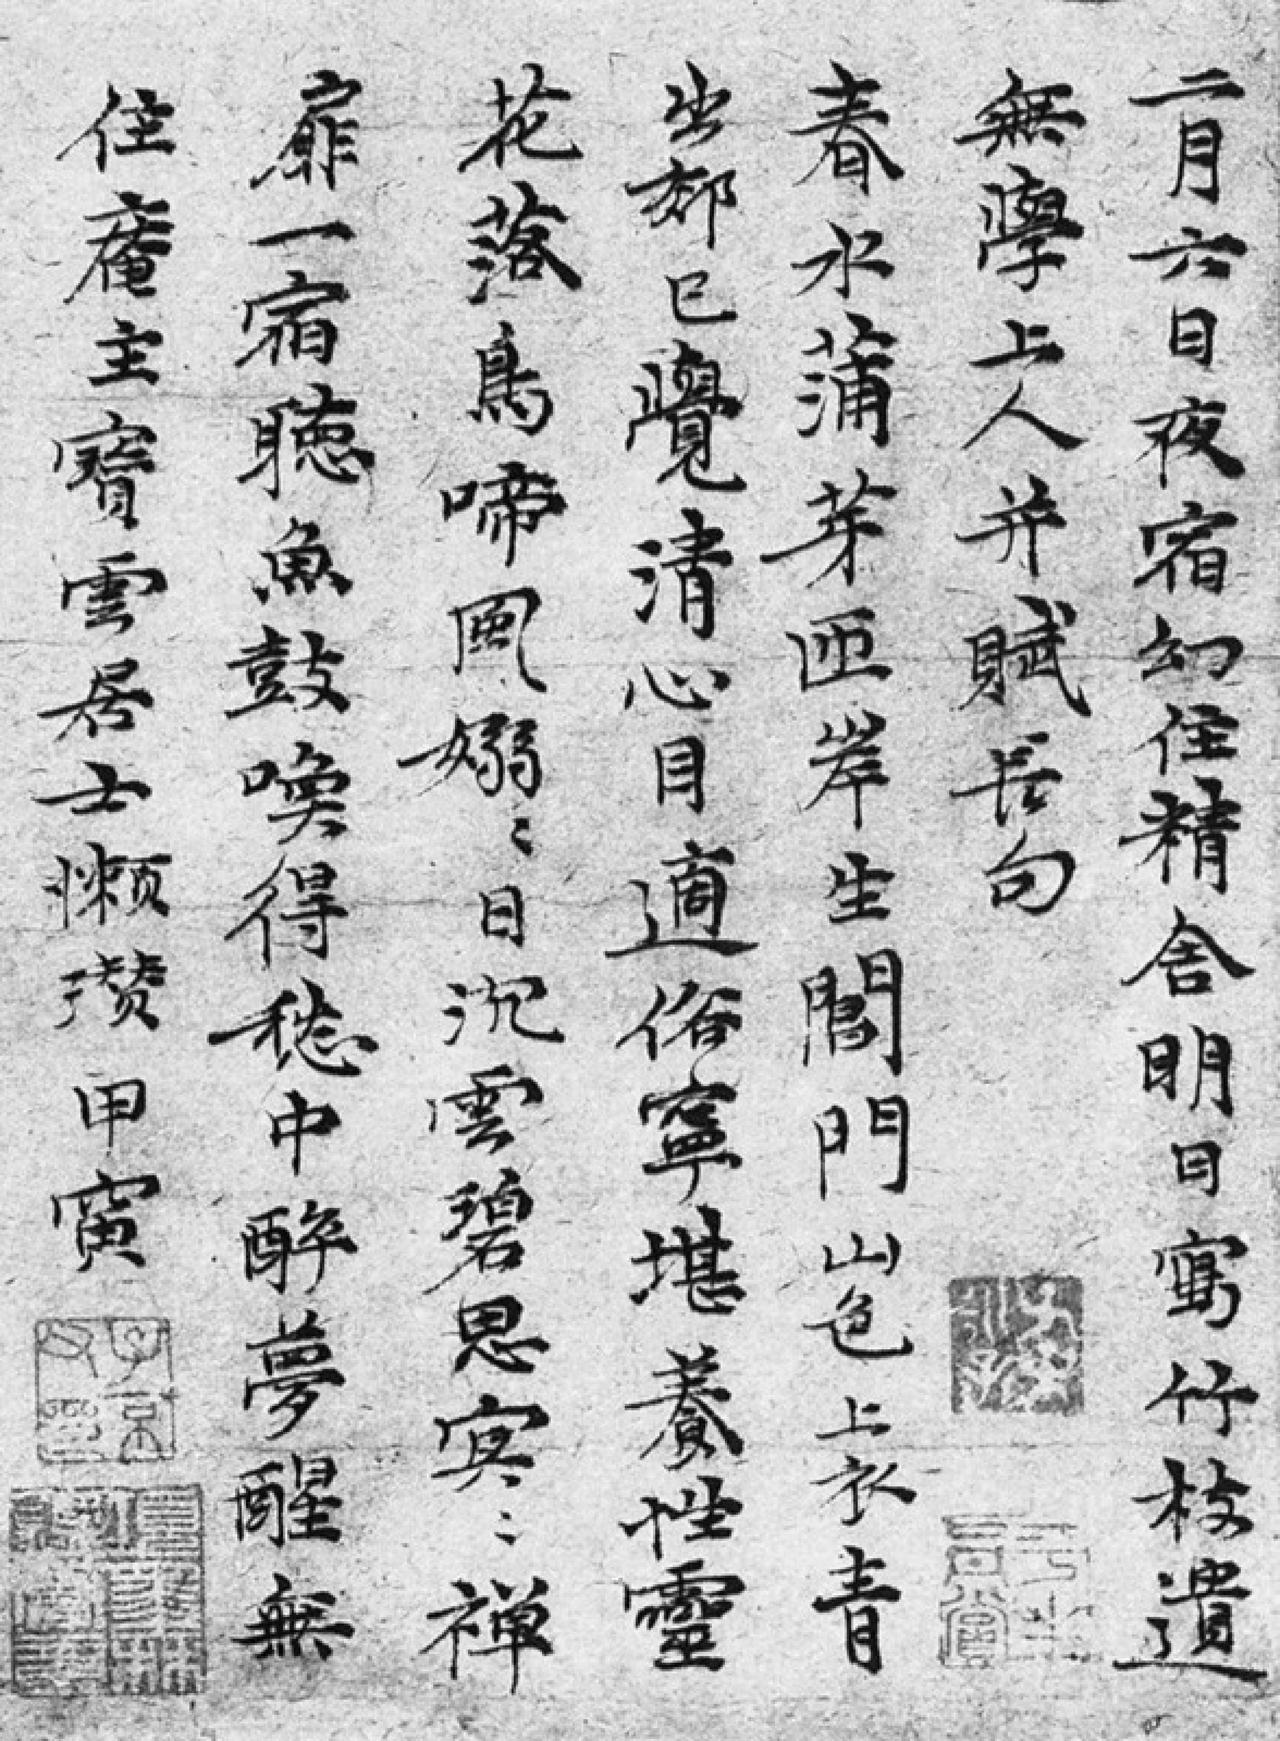 二月六日夜宿幻住精舍明日寫竹枝遺
無學上人并賦長句
春水蒲芽匝岸生閶門山色上衣青
出郊已覺清心目適俗寧堪養性靈
花落鳥啼風嫋〻日沉雲碧思冥〻禅
扉一宿聽魚鼓喚得愁中醉夢醒無
住庵主寶雲居士懶瓚甲寅